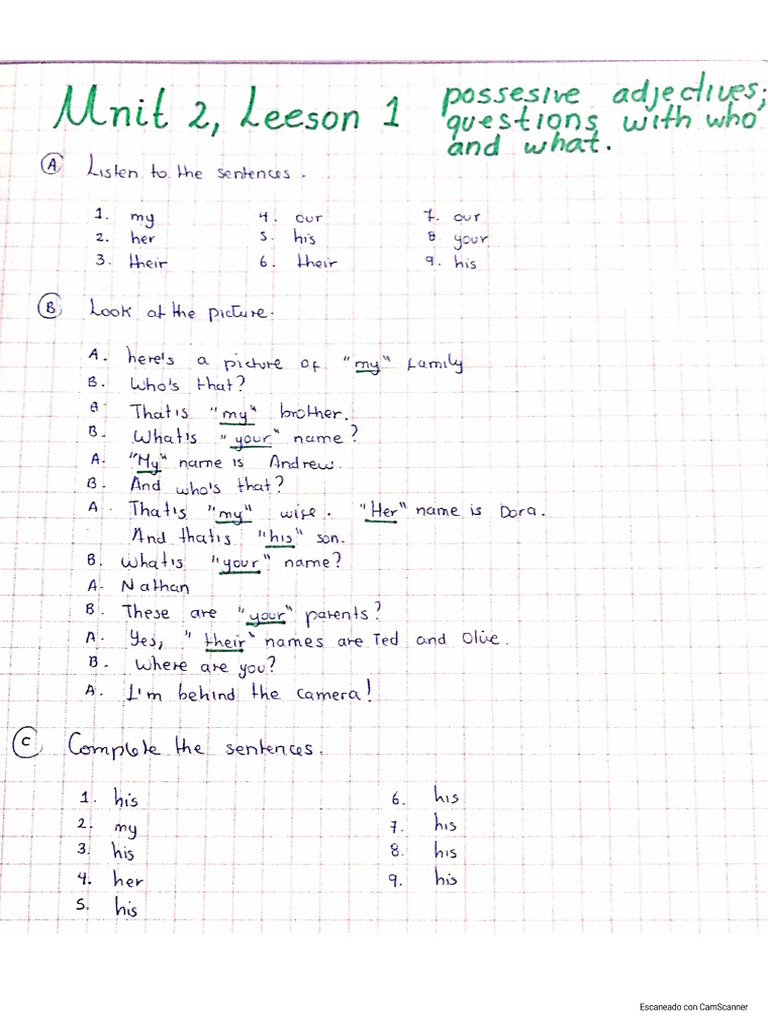 Unit 2, Leeson 1 possesive adjectives;
questions with who
and what.
A Listen to the sentences.
1. my 4. our 7. our
2. her 5. his 8 your
3. their 6. their 9. his
B Look at the picture.
A. here's a picture of "my" family
B. Who's that?
A That's "my" brother.
B. What's "your" name?
A. "My" name is Andrew.
B. And who's that?
A. That's "my" wife. "Her" name is Dora.
And that's "his" son.
B. What's "your" name?
A. Nathan
B. These are "your" parents?
A. Yes, "their" names are Ted and Olive.
B. Where are you?
A. I'm behind the camera!
C Complete the sentences.
1. his 6. his
2. my 7. his
3. his 8. his
4. her 9. his
5. his
Escaneado con CamScanner